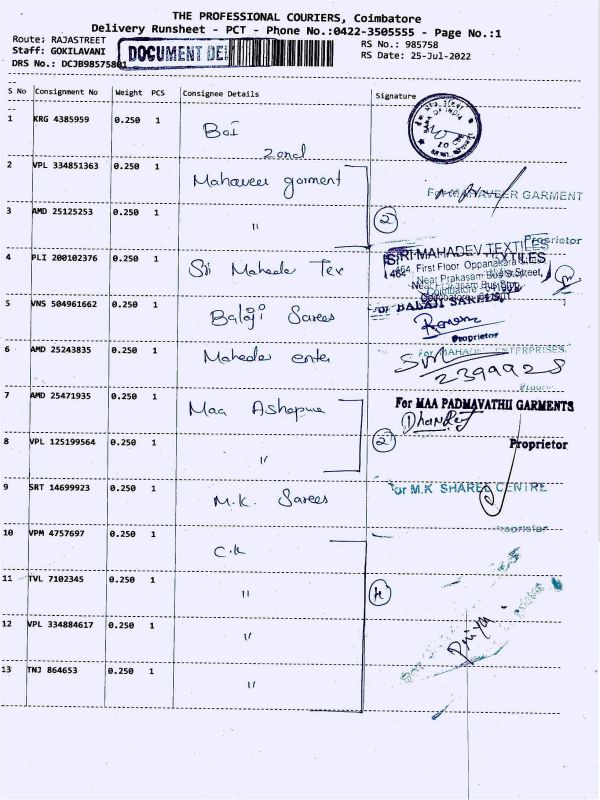 THE PROFESSIONAL COURIERS, Coimbatore
Delivery Runsheet - PCT - Phone No.:0422-3505555 - Page No.:1
Route: RAJASTREET
RS No.: 985758
Staff: GOKILAVANI
DOCUMENT DE
RS Date: 25-Jul-2022
DRS No.: DCJB98575801
S No Consignment No Weight PCS Consignee Details Signature
1 KRG 4385959 0.250 1 BOI
BANK OF INDIA
zonal
2 VPL 334851363 0.250 1 Mahaveer garment
For MAHAVEER GARMENT
3 AMD 25125253 0.250 1 "
2
Proprietor
4 PLI 200102376 0.250 1 Sri Mahadev Tex
SRI MAHADEV TEXTILES
464, First Floor Oppanakara
Near Prakasam Bus Stop
5 VNS 504961662 0.250 1 Balaji Sarees
For BALAJI SAREES
Proprietor
6 AMD 25243835 0.250 1 Mahadev enter
For MAHADEV ENTERPRISES
2399928
7 AMD 25471935 0.250 1 Maa Ashapura
For MAA PADMAVATHII GARMENTS
Dhanraj
8 VPL 125199564 0.250 1 "
2
Proprietor
9 SRT 14699923 0.250 1 M.K. Sarees
For M.K SHAREE CENTRE
Proprietor
10 VPM 4757697 0.250 1 C.K
11 TVL 7102345 0.250 1 "
4
12 VPL 334884617 0.250 1 "
Priya
13 TNJ 864653 0.250 1 "